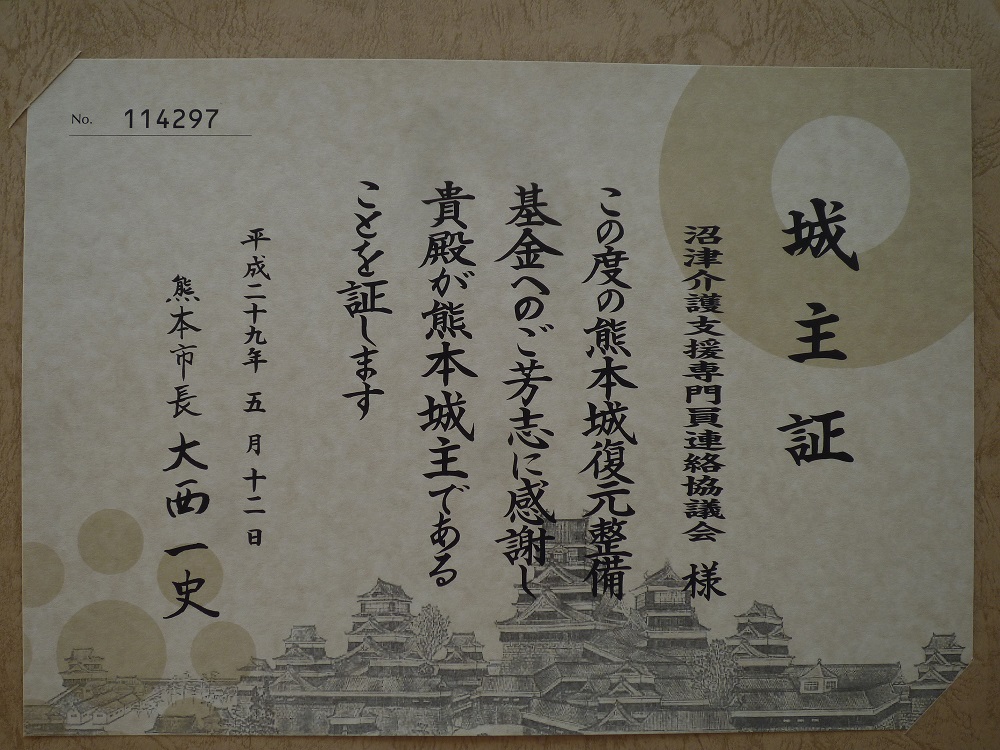 No. 114297
城主証
沼津介護支援専門員連絡協議会 様
この度の熊本城復元整備
基金へのご芳志に感謝し
貴殿が熊本城主である
ことを証します
平成二十九年 五 月 十二 日
熊本市長 大西一史